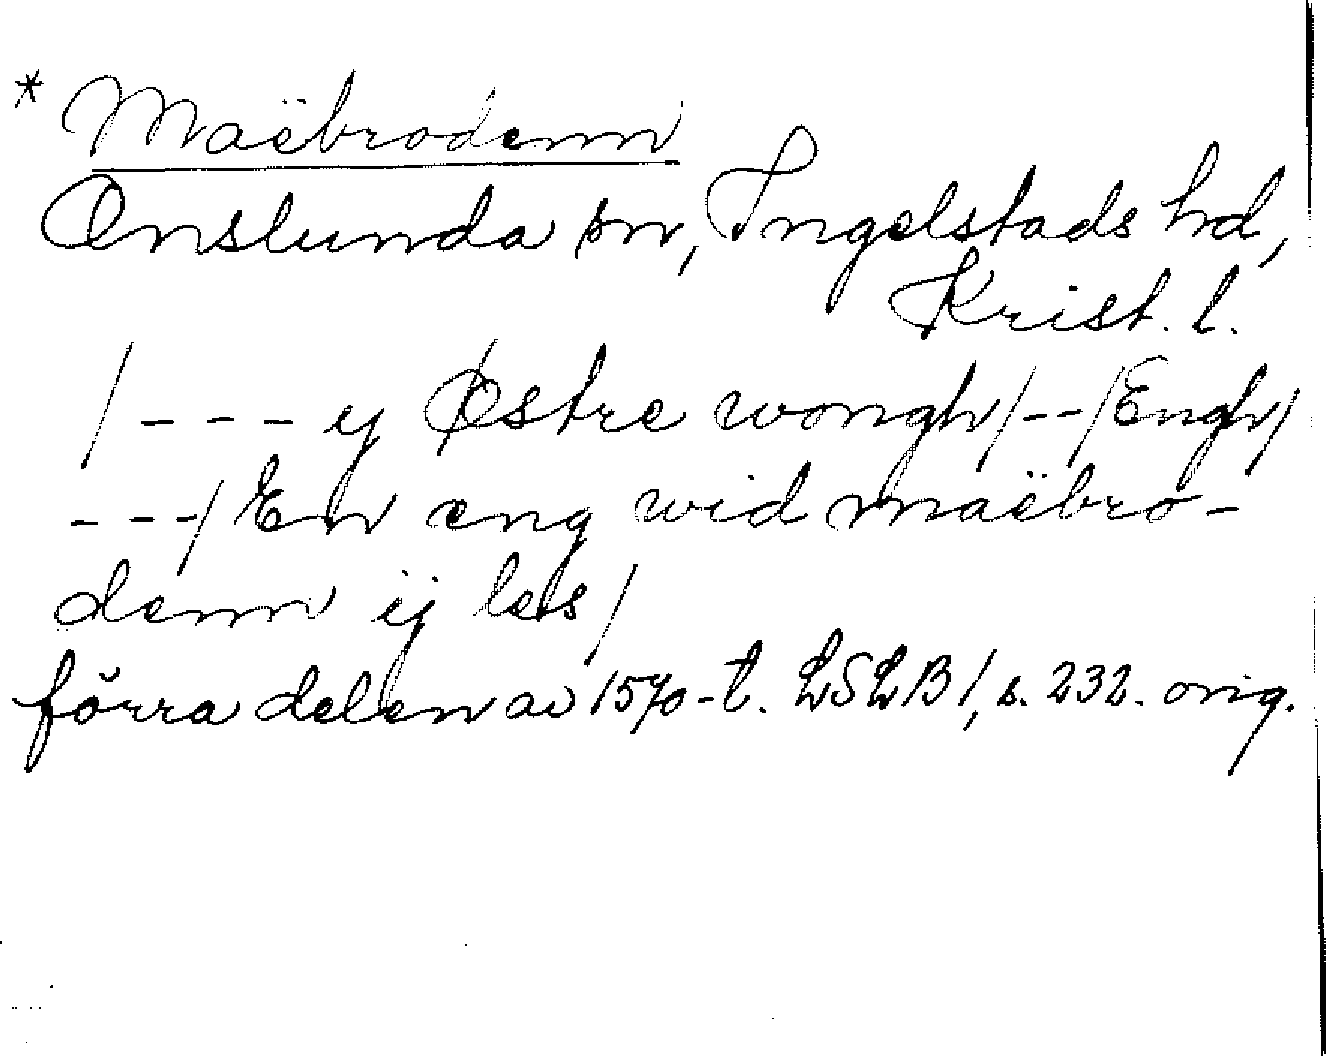 * Maëbrodenn
Onslunda sn, Ingelstads hd,
Krist. l.
/ - - - y Østre wongh / - - / Engh /
- - - / En eng wid maëbro-
denn ij les /
förra delen av 1570-t. LSLB 1, s. 232. orig.